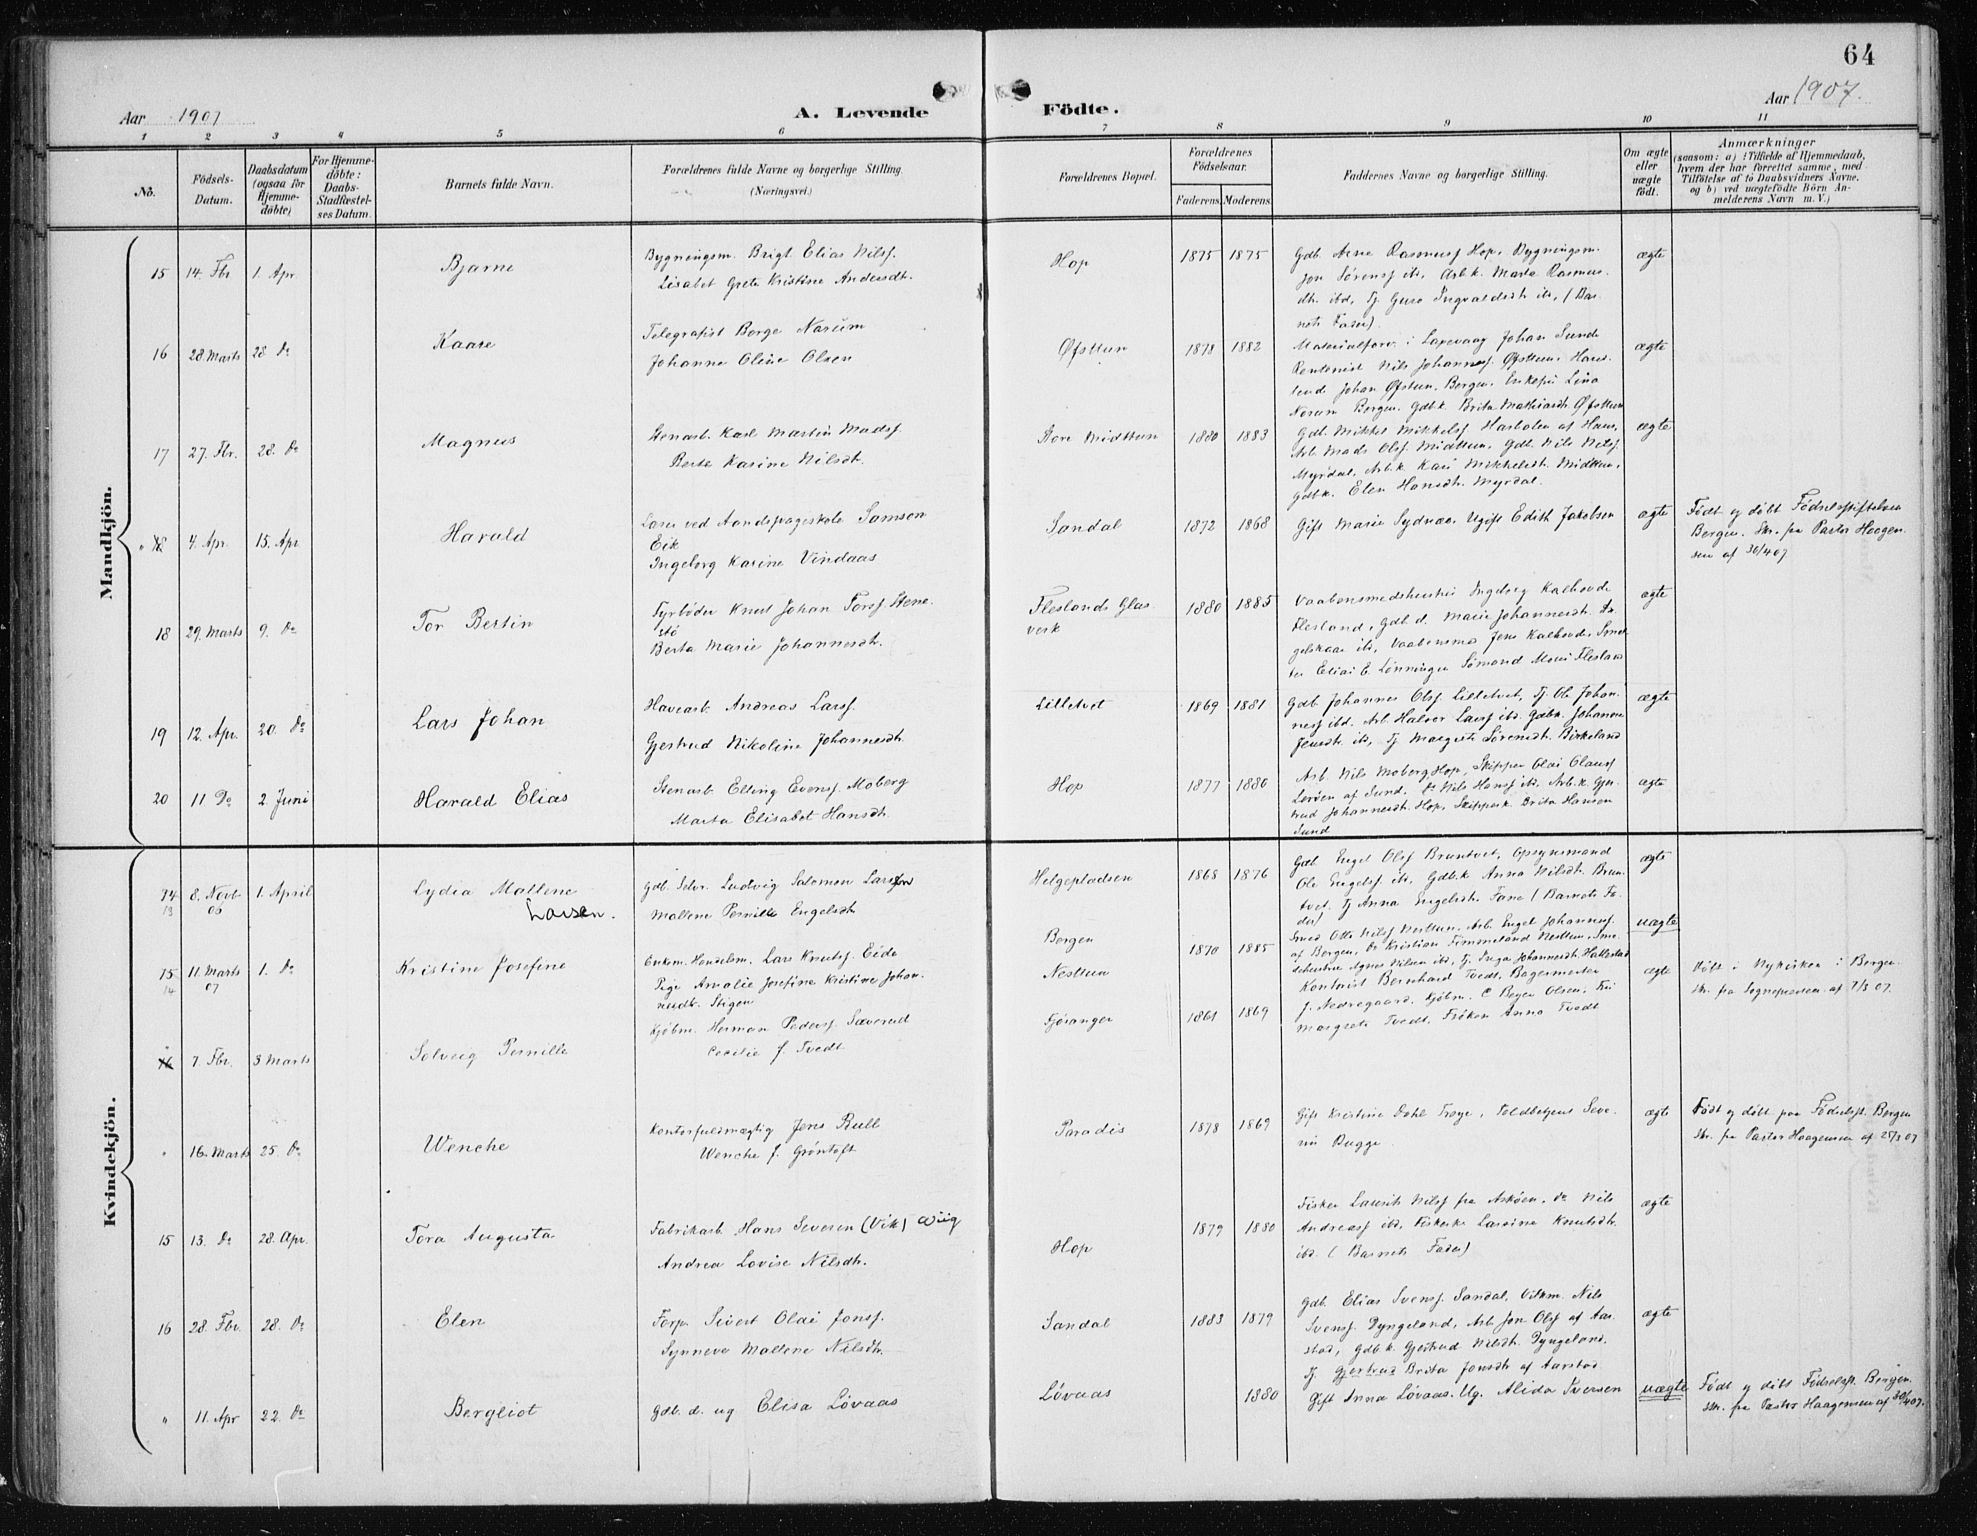 64
Aar 1907
A. Levende
Födte.
Aar 1907.
1 2 3 4 5 6 7 8 9 10 11
No.
Födsels-
Datum.
Daabsdatum
(ogsaa for
Hjemme-
döbte)
For Hjemme-
döbte:
Daabs-
Stadfæstel-
ses Datum.
Barnets fulde Navn.
Forældrenes fulde Navne og borgerlige Stilling.
(Næringsvei.)
Forældrenes Bopæl.
Forældrenes
Födselsaar.
Faderens
Moderens
Faddernes Navne og borgerlige Stilling.
Om ægte
eller
uægte
födt.
Anmærkninger
(saasom: a) i Tilfælde af Hjemmedaab,
hvem der har forrettet samme, med
Tilföielse af to Daabsvidners Navne,
og b) ved uægtefödte Börn An-
melderens Navn m. V.)
Mandkjön.
15 14. Fbr. 1. Apr. Bjarne
Bygningsm. Brigt Elias Nilss.
Lisabet Grete Kristine Andersdt.
Hop 1875 1875
Gdb. Arne Rasmuss Hop, Bygningsm.
Jon Sörenss ibd, Arb.k. Marta Rasmus-
dtr. ibd, Tj. Guro Ingvaldsdt ibd, (Bar-
nets Fader)
ægte
16 28. Marts 28. Do Kaare
Telegrafist Borge Narum
Johanne Oline Olsen
Øfsttun 1878 1882
Materialforv. i Laxevaag Johan Sunde
Rentenist Nils Johanness. Øfsttun, Hans.
tend Johan Øfsttun, Bergen, Enkefru Lina
Narum Bergen. Gdb.k. Brita Mathiasdt. Øfsttun
ægte
17 27. Fbr. 28. Do Magnus
Stenarb. Karl Martin Madss.
Berta Karine Nilsdt.
Store Midttun 1880 1883
Gdb. Mikkel Mikkelss. af Haus,
Arb. Mads Olss. Midttun, Gdb. Nils Nilss.
Myrdal, Arb.k. Kari Mikkelsdt. Midttun,
Gdb.k. Elen Hansdt. Myrdal.
ægte
" 18 4. Apr. 15. Apr Harald
Lærer ved Aandssvageskole Samson
Eik
Ingeborg Karine Vindaas
Sandal 1872 1868
Gift Marie Sydnæs, Ugift Edith Jakobsen
ægte
Födt og döbt Födselsstiftelsen
Bergen. Skr. fra Pastor Haagen-
sen af 30/4 07
18 29. Marts 9. Do Tor Bertin
Fyrböder Knut Johan Torss. Stene-
stö
Berta Marie Johannesdt.
Fleslands Glas-
verk 1880 1885
Vaabensmedshustru Ingeborg Kalhovde
Flesland, Gdb.d. Marie Johannesdt.
ibd, Vaabensmed Jens Kalhovde,
Elias E. Lönningen Sömand Mons Flesland
ægte
19 12. Apr. 20. Do Lars Johan
Havearb. Andreas Larss.
Gjertrud Nikoline Johannesdt.
Lilletvet 1869 1881
Gdb. Johannes Olss Lilletvet, Tj. Ole Johan-
ness ibd. Arb. Halvor Larss ibd. Gdb.k. Johanne
Jensdt. ibd, Tj Margrete Sörensdt. Birkeland
ægte
20 11 Do 2. Juni Harald Elias
Stenarb. Elling Evenss. Moberg
Marta Elisabet Hansdt.
Hop 1877 1880
Arb. Nils Moberg Hop, Skipper Olai Olauss
af Sund. Do Nils Hanss ibd, Arb.k. Gjer-
trud Johannesdt. Hop, Skipperk. Brita Hansen
Sund
ægte
Kvindekjön.
14 8. Novb 1. April Lydia Mallene
13 06 Larsen.
Gdb. Selv. Ludvig Salomon Larsen
Mallene Pernille Engelsdt
Helgepladsen 1868 1876
Gdb. Engel Olss Bruntvet, Opsynsmand
Ole Engelss. ibd, Gdb.k Anna Nilsdt. Brun-
tvet, Tj Anna Engelsdt. Fane (Barnets Fa-
der)
ægte
15 11. Marts 1. Do Kristine Josefine
14 07
Enkem. Handelsm. Lars Knutss. Eide
Pige Amalie Josefine Kristine Johan-
nesdt. Stigen
Bergen
Nesttun 1870 1885
Smed Otto Nilss Nesttun, Arb. Engel Johanness.
af Bergen, Do Kristian Timmeland Nesttun, Sme-
dehustru Agnes Nilsen ibd, Tj. Inga Johannesdt. Hallestad
uægte
7. Fbr. 3 Marts Solveig Pernille
Kjöbm. Herman Peders. Sæverud
Cecilie f. Tvedt
Fjösanger 1861 1869
Kontorist Bernhard Tvedt, Bagermester
J. Nedregaard, Kjöbm. C Beyer Olsen, Fru
Margrete Tvedt, Fröken Anna Tvedt
ægte
Döbt i Nykirken i Bergen.
Skr. fra Sognepresten af 7/3 07.
" 16. Marts 25. Do Wenche
Kontorfuldmægtig Jens Bull
Wenche f. Gröntoft
Paradis 1878 1869
Gift Kristine Dahl Troye, Toldbetjent Seve-
rin Bugge
ægte
Födt og döbt paa Födselsst. Bergen
Skr. fra Pastor Haagensen af 25/3 07
15 13. Do 28. Apr. Tora Augusta
Fabrikarb. Hans Seversen (Vik) Wiig
Andrea Lovise Nilsdt.
Hop 1879 1880
Fisker Laurits Nilss fra Asköen, Do Nils
Andreass ibd, Fiskerk. Larsine Knutsdt.
ibd. (Barnets Fader)
ægte
16 28. Fbr. 28. Do Elen
Forp. Sivert Olai Jonss.
Synneve Mallene Nilsdt.
Sandal 1883 1879
Gdb. Elias Svenss. Sandal, Nils
Svenss. Dyngeland, Arb Jon Olss af Aar-
stad, Gdb.k. Gjertrud Nilsdt. Dyngeland.
Tj. Gjertrud Brita Jonsdt af Aarstad
ægte
" 11. Apr 22. Do Bergliot
Gdb. d. ug Elisa Lövaas
Lövaas 1880
Gift Anna Lövaas. Ug. Alida Iversen
uægte
Födt og döbt Födselsst. Bergen.
Skr. fra Pastor Haagensen af 30/4 07.